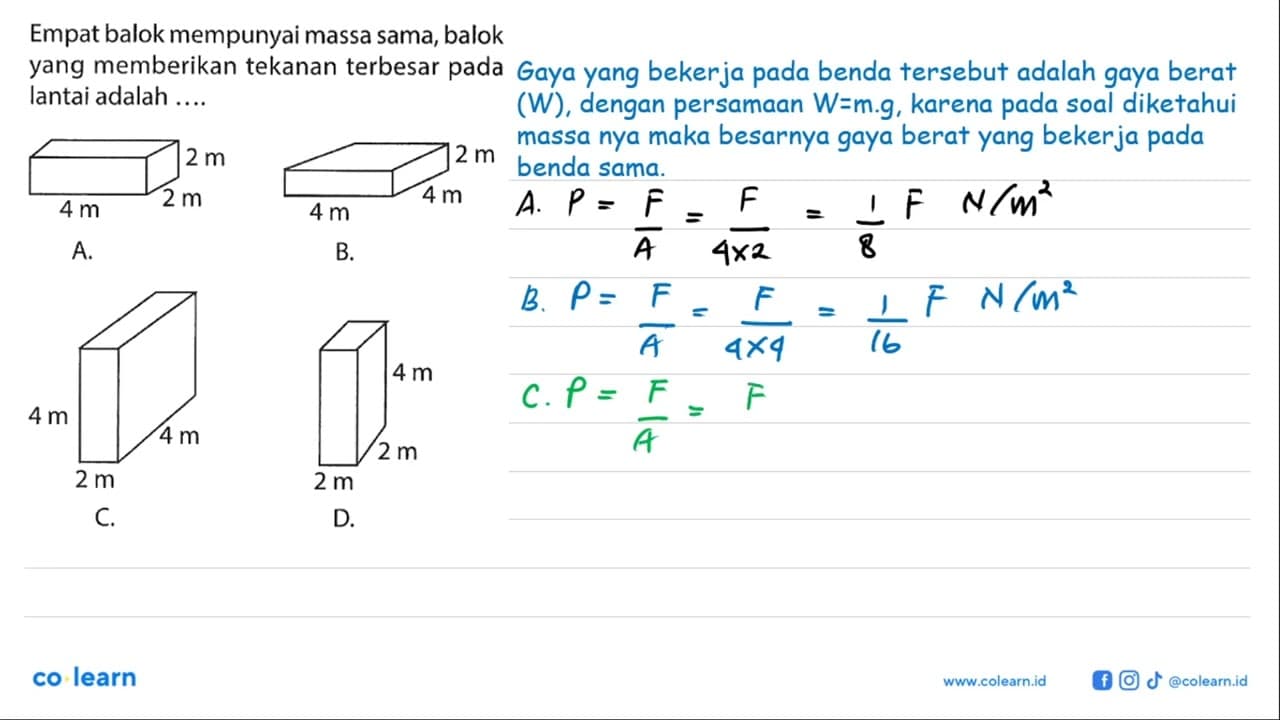 Empat balok mempunyai massa sama, balok
yang memberikan tekanan terbesar pada
lantai adalah ....
2 m
2 m
4 m
A.
2 m
4 m
4 m
B.
4 m
4 m
2 m
C.
4 m
2 m
2 m
D.
Gaya yang bekerja pada benda tersebut adalah gaya berat
(W), dengan persamaan W=m.g, karena pada soal diketahui
massa nya maka besarnya gaya berat yang bekerja pada
benda sama.
A. P = F/A = F/4x2 = 1/8 F N/m²
B. P = F/A = F/4x4 = 1/16 F N/m²
C. P = F/A = F
co learn
www.colearn.id
@colearn.id